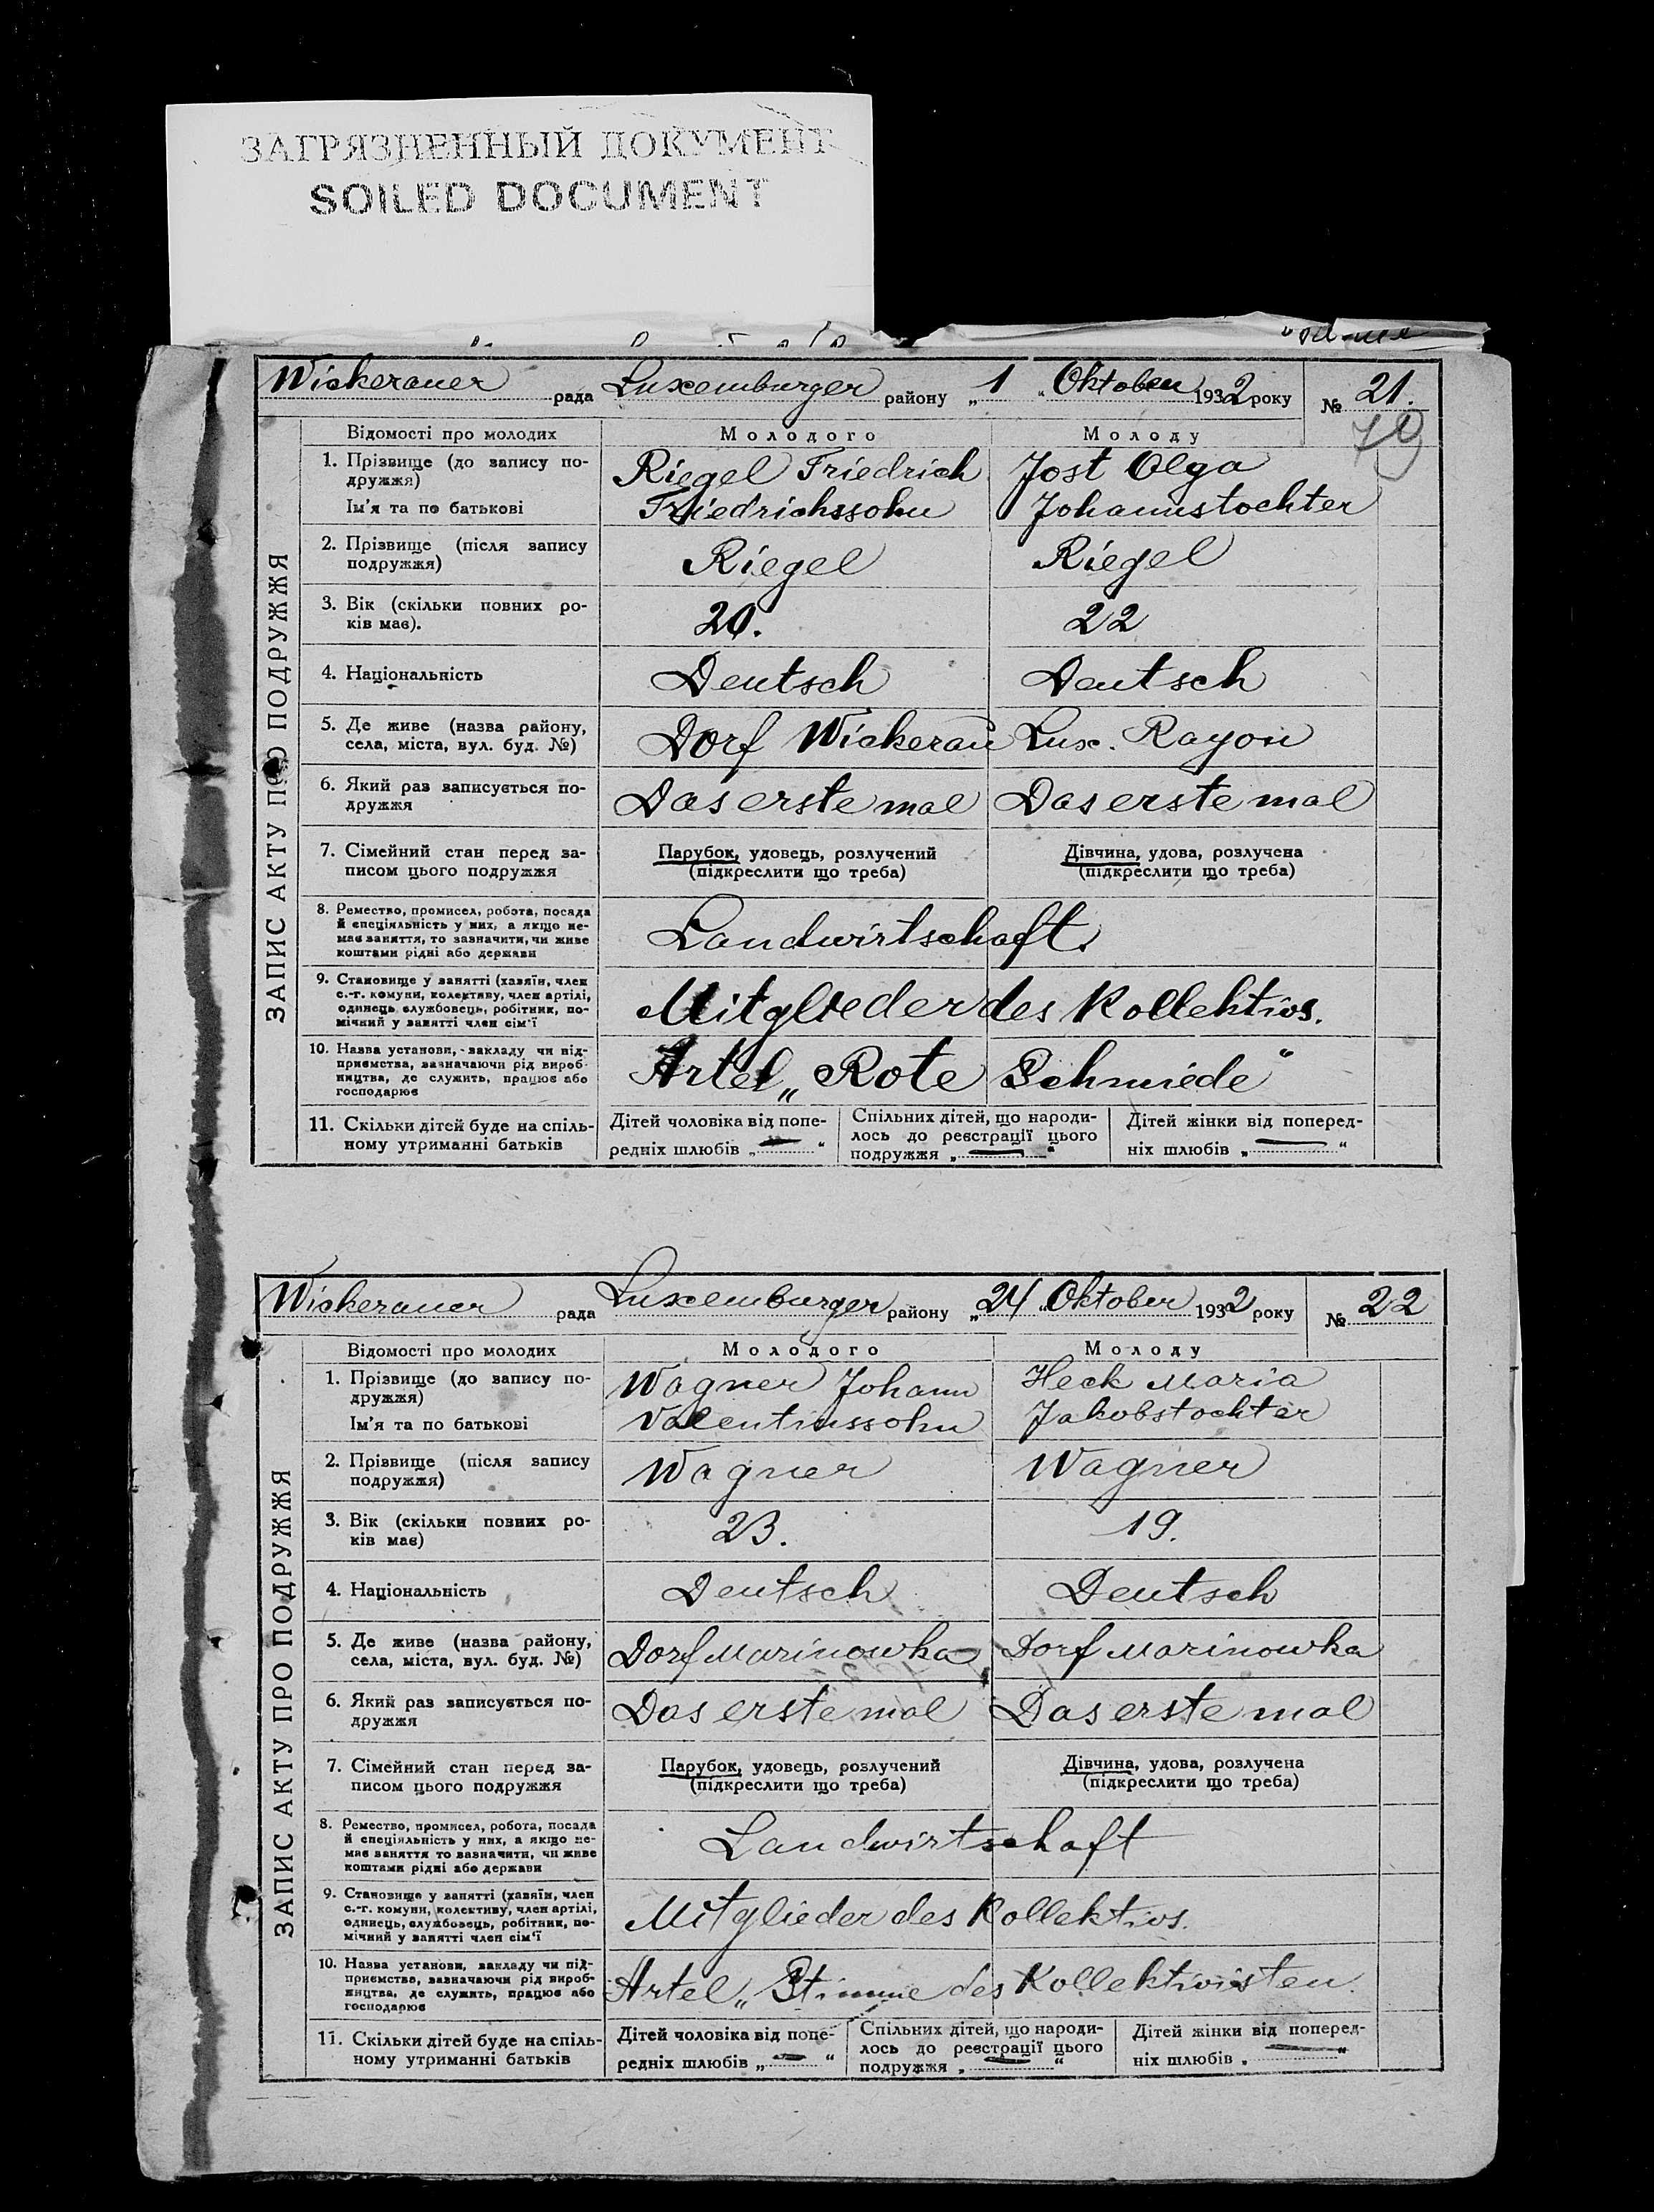 ЗАГРЯЗНЕННЫЙ ДОКУМЕНТ
SOILED DOCUMENT
Wickerauer рада Luxemburger району „1" Oktober 1932 року № 21.
Відомості про молодих Молодого Молоду
ЗАПИС АКТУ ПРО ПОДРУЖЖЯ
1. Прізвище (до запису по-
дружжя)
Ім'я та по батькові
Riegel Friedrich
Friedrichssohn
Jost Olga
Johannstochter
2. Прізвище (після запису
подружжя)
Riegel Riegel
3. Вік (скільки повних ро-
ків має).
20. 22
4. Національність Deutsch Deutsch
5. Де живе (назва району,
села, міста, вул. буд. №)
Dorf Wickerau Lux. Rayon
6. Який раз записується по-
дружжя
Das erste mal Das erste mal
7. Сімейний стан перед за-
писом цього подружжя
Парубок, удовець, розлучений
(підкреслити що треба)
Дівчина, удова, розлучена
(підкреслити що треба)
8. Ремество, промисел, робота, посада
й спеціяльність у них, а якщо не-
має заняття, то зазначити, чи живе
коштами рідні або держави
Landwirtschaft.
9. Становище у занятті (хазяїн, член
с.-г. комуни, колективу, член артілі,
одинець службовець, робітник, по-
мічний у занятті член сім'ї
Mitglieder des Kollektivs.
10. Назва установи, закладу чи під-
приємства, зазначаючи рід вироб-
ництва, де служить, працює або
господарює
Artel „Rote Schmiede"
11. Скільки дітей буде на спіль-
ному утриманні батьків
Дітей чоловіка від попе-
редніх шлюбів „—"
Спільних дітей, що народи-
лось до реєстрації цього
подружжя „—"
Дітей жінки від поперед-
ніх шлюбів „—"
Wickerauer рада Luxemburger району „24" Oktober 1932 року № 22
Відомості про молодих Молодого Молоду
ЗАПИС АКТУ ПРО ПОДРУЖЖЯ
1. Прізвище (до запису по-
дружжя)
Ім'я та по батькові
Wagner Johann
Valentinssohn
Heck Maria
Jakobstochter
2. Прізвище (після запису
подружжя)
Wagner Wagner
3. Вік (скільки повних ро-
ків має)
23. 19.
4. Національність Deutsch Deutsch
5. Де живе (назва району,
села, міста, вул. буд. №)
Dorf Marinowka Dorf Marinowka
6. Який раз записується по-
дружжя
Das erste mal Das erste mal
7. Сімейний стан перед за-
писом цього подружжя
Парубок, удовець, розлучений
(підкреслити що треба)
Дівчина, удова, розлучена
(підкреслити що треба)
8. Ремество, промисел, робота, посада
й спеціяльність у них, а якщо не-
має заняття то зазначити, чи живе
коштами рідні або держави
Landwirtschaft
9. Становище у занятті (хазяїн, член
с.-г. комуни, колективу, член артілі,
одинець, службовець, робітник, по-
мічний у занятті член сім'ї
Mitglieder des Kollektivs.
10. Назва установи, закладу чи під-
приємства, зазначаючи рід вироб-
ництва, де служить, працює або
господарює
Artel „Stimme des Kollektivisten.
11. Скільки дітей буде на спіль-
ному утриманні батьків
Дітей чоловіка від попе-
редніх шлюбів „—"
Спільних дітей, що народи-
лось до реєстрації цього
подружжя „—"
Дітей жінки від поперед-
ніх шлюбів „—"